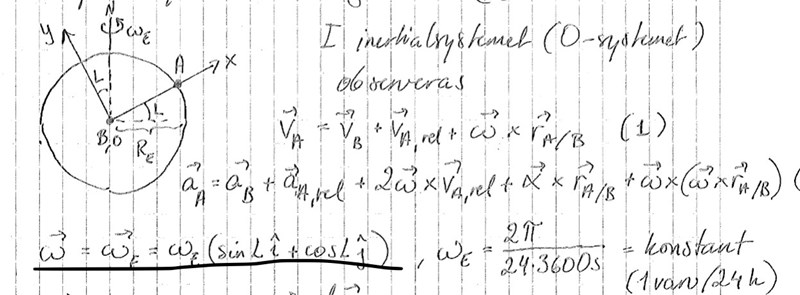 N
y ω_E
I inertialsystemet (O-systemet)
observeras
A x
L L
B,O R_E
V⃗_A = V⃗_B + V⃗_A,rel + ω⃗ × r⃗_A/B (1)
a⃗_A = a⃗_B + a⃗_A,rel + 2ω⃗ × v⃗_A,rel + α⃗ × r⃗_A/B + ω⃗ × (ω⃗ × r⃗_A/B) (
ω⃗ = ω⃗_E = ω_E (sin L î + cos L ĵ) , ω_E = 2π / 24·3600s = konstant
(1 varv/24h)